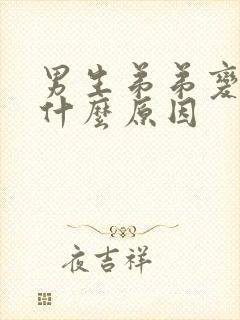 男生弟弟變
什麼原因
夜吉祥